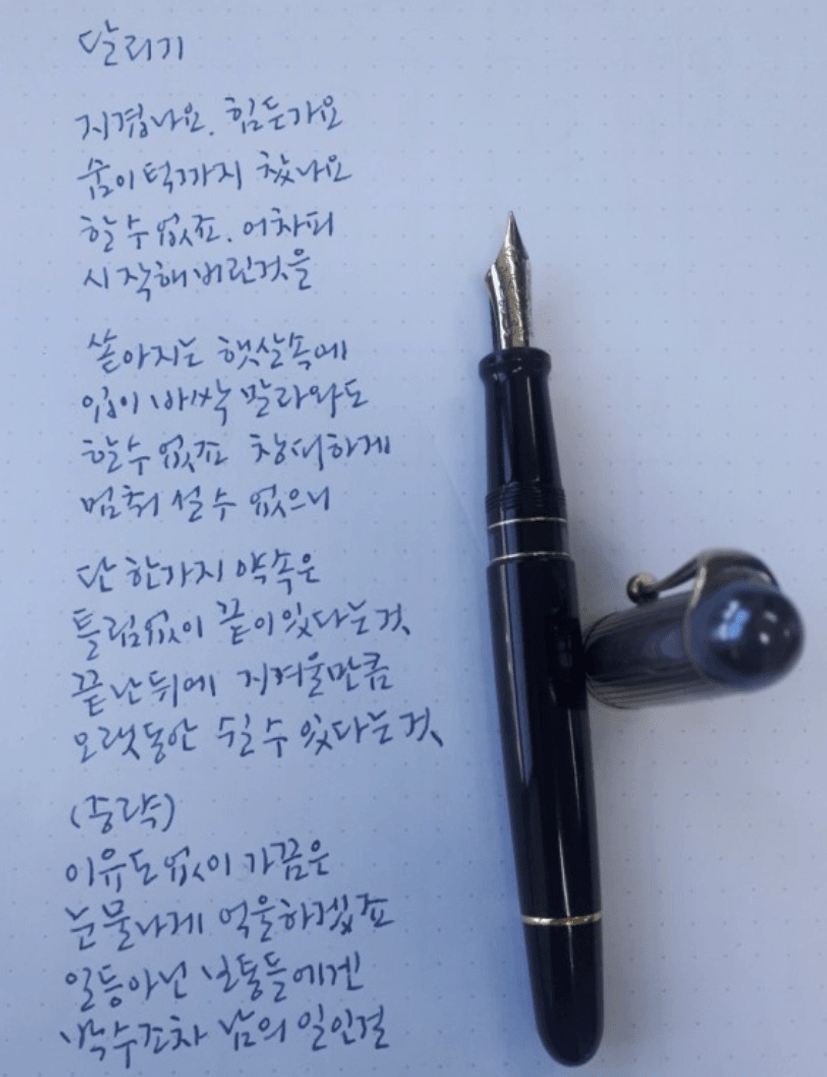 달리기
지겹나요. 힘든가요
숨이 턱까지 찼나요
할 수 없죠. 어차피
시작해 버린것을
쏟아지는 햇살속에
입이 바싹 말라와도
할수 없죠 창피하게
멈춰 설 수 없으니
단 한가지 약속은
틀림없이 끝이 있다는 것
끝난 뒤에 지겨울만큼
오랫동안 쉴 수 있다는 것
(중략)
이유도 없이 가끔은
눈물나게 억울하겠죠
일등아닌 보통들에겐
박수조차 남의 일인걸